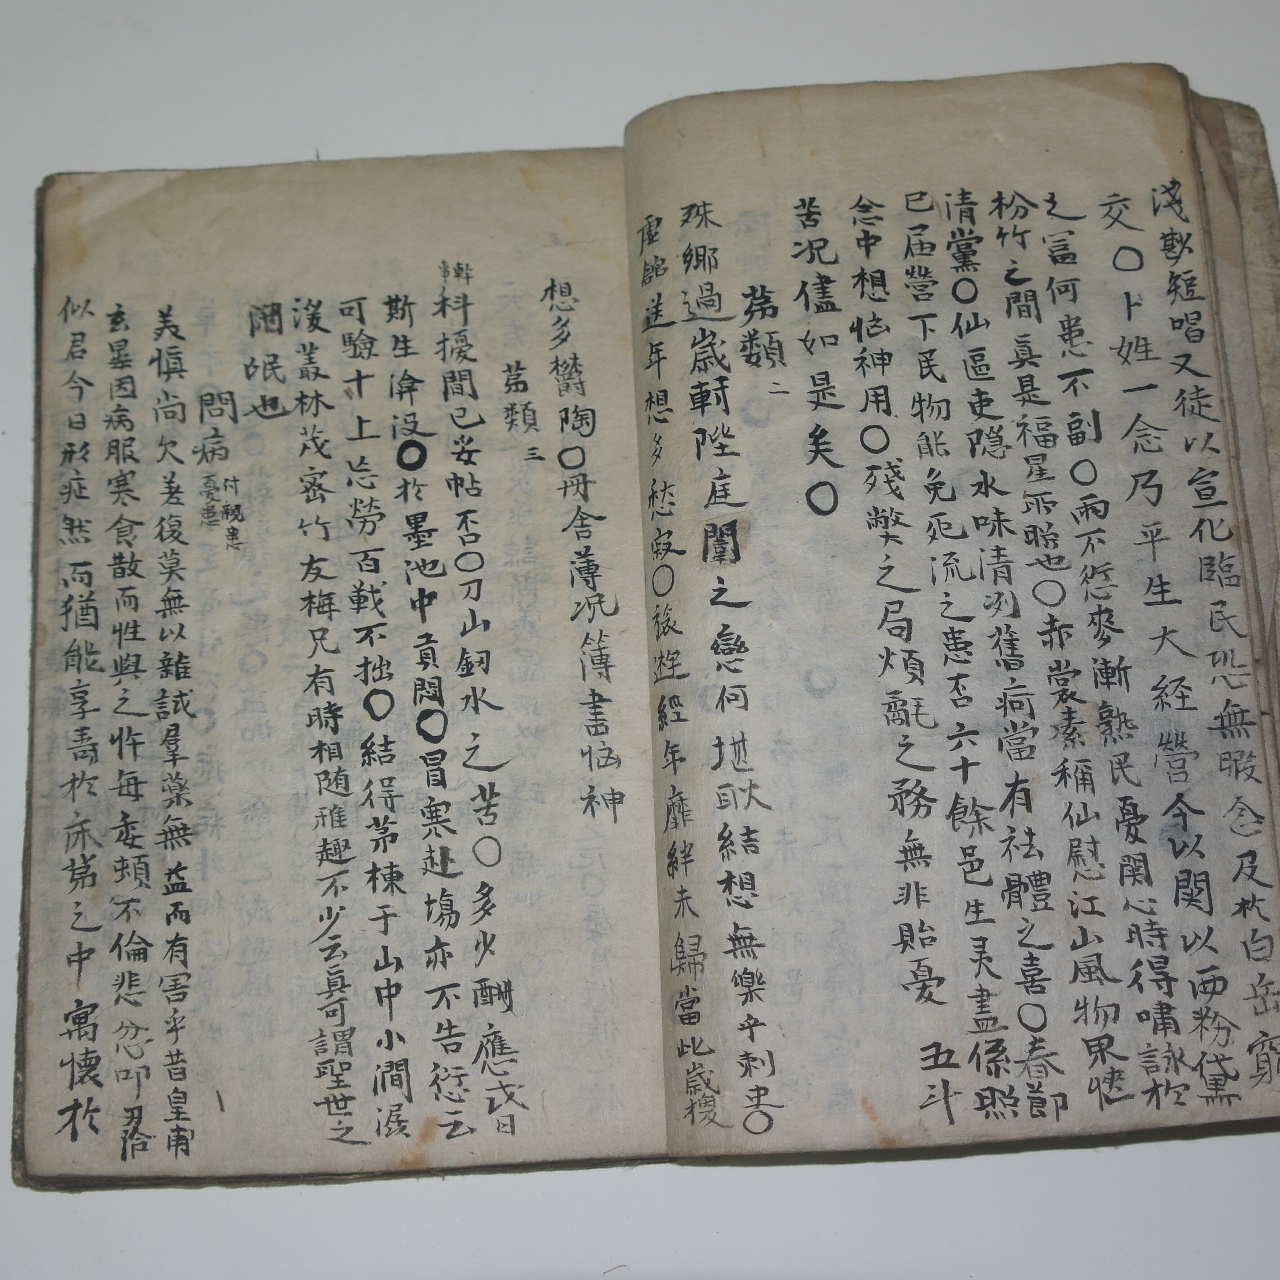 淺斟短唱又徒以宣化臨民恐無暇念及於白岳窮
交〇卜姓一念乃平生大経營今以関以西粉黛
之冨何患不副〇雨不愆麥漸熟民憂関心時得嘯詠於
枌竹之間眞是福星所照也〇赤裳素稱仙慰江山風物果愜
清黨〇仙區吏隱水味清冽舊疴當有祛體之喜〇春節
已届營下民物能免死流之患否六十餘邑生灵盡係照
念中想惱神用〇殘獘之局煩氄之務無非貽憂 五斗
苦况儘如是矣〇
苐類二
殊郷過歳軒陛庭闈之戀何地耿結想無樂乎刺史〇
虚舘送年想多愁寂〇旅遊經年靡絆未歸當此歳換
想多欝陶〇冊舍薄况簿書惱神
苐類三
科擾間已妥帖否〇刀山釰水之苦〇多少酬應或日
斯生渰沒〇於墨池中貢悶〇冒寒赴塲亦不告愆云
可驗十上忘勞百戰不拙〇結得茅棟于山中小澗潺
湲叢林茂密竹友梅兄有時相随雅趣不少云眞可謂聖世之
閒氓也
問病 付親患 憂患
美愼尚欠差復莫無以雜試羣藥無益而有害乎昔皇甫
玄晏因病服寒食散而性與之忤每委頓不倫悲忿叩刃
似君今日形症然而猶能享壽於床第之中寓懷於